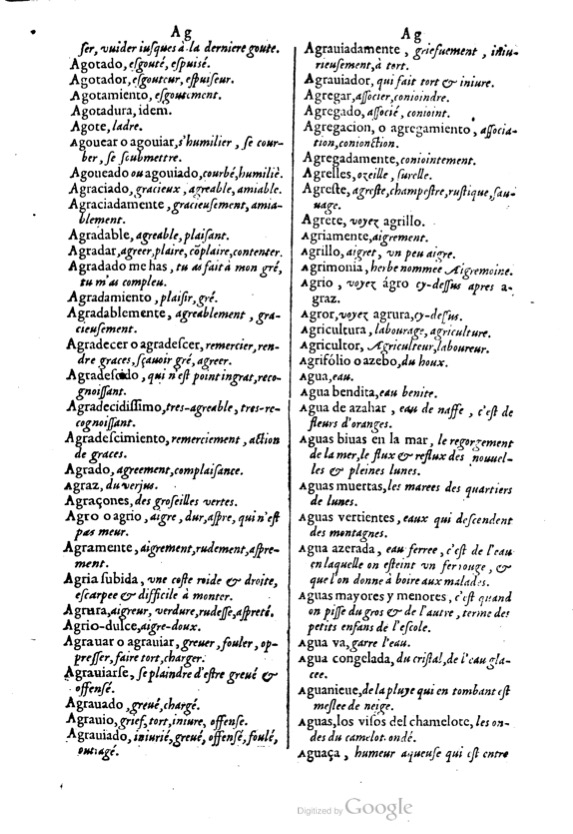 Ag
ſer, vuider iuſques à la derniere goute.
Agotado, eſgouté, eſpuisé.
Agotador, eſgouteur, eſpuiſeur.
Agotamiento, eſgoutement.
Agotadura, idem.
Agote, ladre.
Agouear o agouiar, s'humilier, ſe cour-
ber, ſe ſoubmettre.
Agoueado ou agouiado, courbé, humilié.
Agraciado, gracieux, agreable, amiable.
Agraciadamente, gracieuſement, amia-
blement.
Agradable, agreable, plaiſant.
Agradar, agreer, plaire, cōplaire, contenter.
Agradado me has, tu as fait à mon gré,
tu m'as compleu.
Agradamiento, plaiſir, gré.
Agradablemente, agreablement, gra-
cieuſement.
Agradecer o agradeſcer, remercier, ren-
dre graces, ſçauoir gré, agreer.
Agradeſcido, qui n'eſt point ingrat, reco-
gnoiſſant.
Agradecidiſſimo, tres-agreable, tres-re-
cognoiſſant.
Agradeſcimiento, remerciement, action
de graces.
Agrado, agreement, complaiſance.
Agraz, du verjus.
Agraçones, des groſeilles vertes.
Agro o agrio, aigre, dur, aſpre, qui n'eſt
pas meur.
Agramente, aigrement, rudement, aſpre-
ment.
Agria ſubida, vne coſte roide & droite,
eſcarpee & difficile à monter.
Agrura, aigreur, verdure, rudeſſe, aſpreté.
Agrio-dulce, aigre-doux.
Agrauar o agrauiar, greuer, fouler, op-
preſſer, faire tort, charger.
Agrauiarſe, ſe plaindre d'eſtre greué &
offensé.
Agrauado, greué, chargé.
Agrauio, grief, tort, iniure, offenſe.
Agrauiado, iniurié, greué, offensé, foulé,
outragé.
Ag
Agrauiadamente, griefuement, iniu-
rieuſement, à tort.
Agrauiador, qui fait tort & iniure.
Agregar, aſſocier, conioindre.
Agregado, aſſocié, conioint.
Agregacion, o agregamiento, aſſocia-
tion, conionction.
Agregadamente, coniointement.
Agrelles, ozeille, ſurelle.
Agreſte, agreſte, champeſtre, ruſtique, ſau-
uage.
Agrete, voyez agrillo.
Agriamente, aigrement.
Agrillo, aigret, vn peu aigre.
Agrimonia, herbe nommee Aigremoine.
Agrio, voyez ágro cy-deſſus apres a-
graz.
Agror, voyez agrura, cy-deſſus.
Agricultura, labourage, agriculture.
Agricultor, Agriculteur, laboureur.
Agrifólio o azebo, du houx.
Agua, eau.
Agua bendita, eau benite.
Agua de azahar, eau de naffe, c'eſt de
fleurs d'oranges.
Aguas biuas en la mar, le regorgement
de la mer, le flux & reflux des nouuel-
les & pleines lunes.
Aguas muertas, les marees des quartiers
de lunes.
Aguas vertientes, eaux qui deſcendent
des montagnes.
Agua azerada, eau ferree, c'eſt de l'eau
en laquelle on eſteint vn fer rouge, &
que l'on donne à boire aux malades.
Aguas mayores y menores, c'eſt quand
on piſſe du gros & de l'autre, terme des
petits enfans de l'eſcole.
Agua va, garre l'eau.
Agua congelada, du criſtal, de l'eau gla-
cee.
Aguanieue, de la pluye qui en tombant eſt
meſlee de neige.
Aguas, los viſos del chamelote, les on-
des du camelot ondé.
Aguaça, humeur aqueuſe qui eſt entre
Digitized by Google